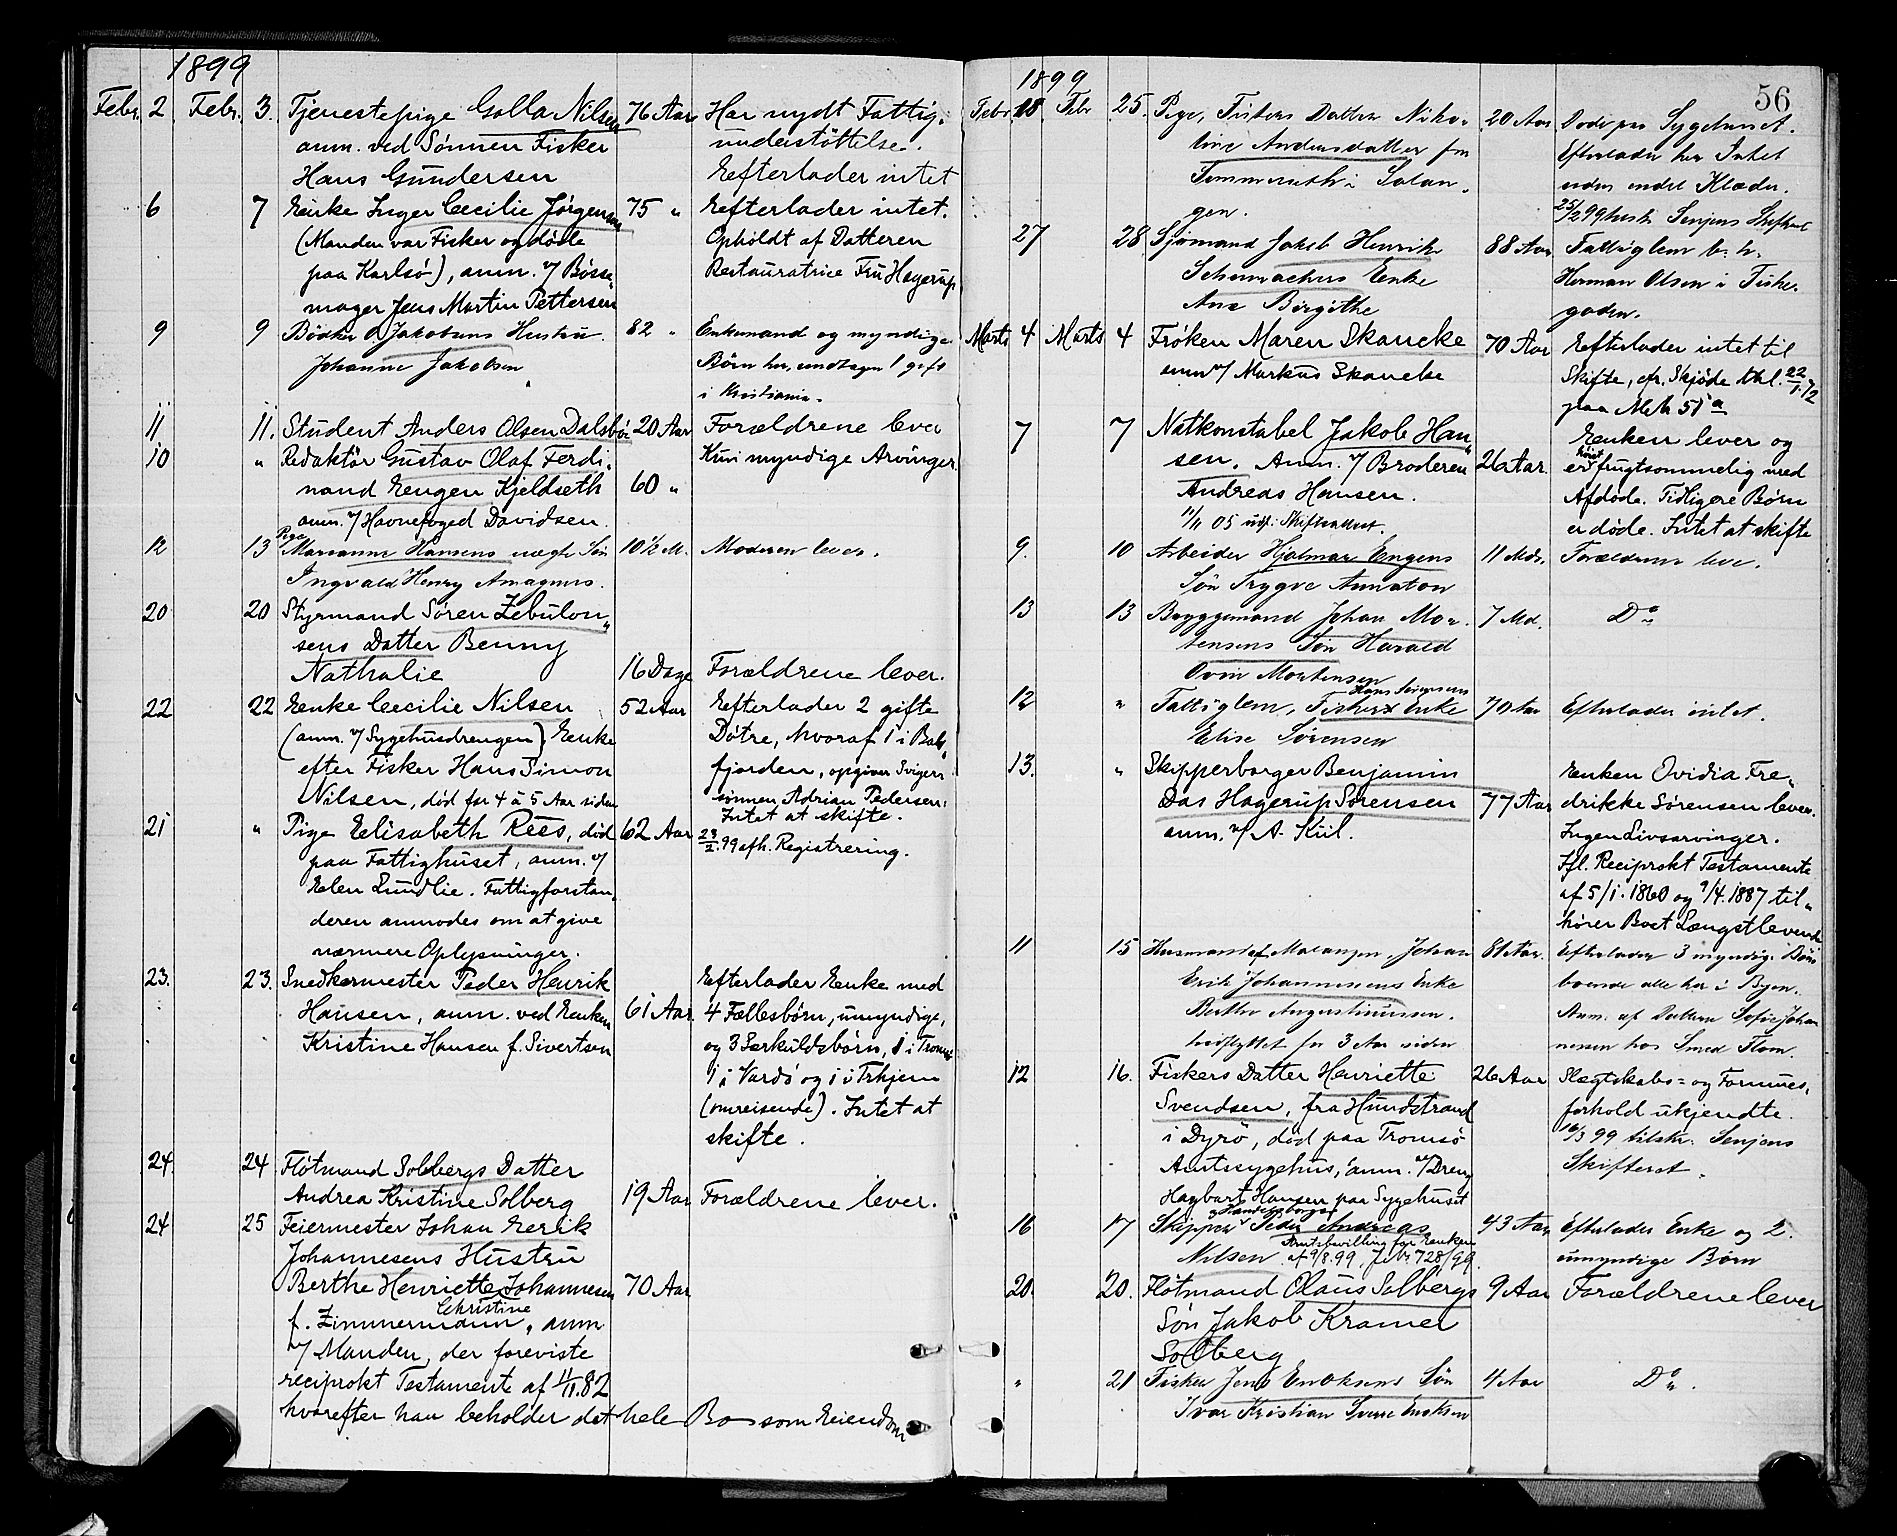 1899
Febr. 2 Febr. 3. Tjenestepige Golla Nilsen 76 Aar Har nydt Fattig-
anm. ved Sønnen Fisker understöttelse.
Hans Gundersen Efterlader intet
6 7 Enke Inger Cecilie Jørgensen 75 " Efterlader intet.
(Manden var Fisker og døde Opholdt af Datteren
paa Karlsö), anm. v/ Bösse- Restauratrice Fru Hagerup
mager Jens Martin Pettersen
9 9 Bødker Jakobsens Hustru 82 " Enkemand og myndige
Johanne Jakobsen Börn her, undtagen 1 gift
i Kristiania.
11 11. Student Anders Olsen Dalsbö 20 Aar Forældrene lever
10 " Redaktör Gustav Olaf Ferdi- Kun myndige Arvinger
nand Eugen Kjeldseth 60 "
anm. v/ Havnefoged Davidsen.
12 13 Pige Marianne Hansens uægte Søn 10½ M. Moderen lever.
Ingvald Henry Amagnus.
20 20 Styrmand Søren Zebulon-
sens Datter Benny
Nathalie 16 Dage Forældrene lever.
22 22 Enke Cecilie Nilsen 52 Aar Efterlader 2 gifte
(anm. v/ Sygehusdrengen) Enke Døtre, hvoraf 1 i Bals-
efter Fisker Hans Simon fjorden, opgiver Sviger-
Nilsen, död for 4 à 5 Aar siden sønnen Adrian Pedersen.
Intet at skifte.
21 " Pige Elisabeth Rees, död 62 Aar 23/2.99 afh. Registrering.
paa Fattighuset, anm. v/
Elen Lundlie. Fattigforstan-
deren anmodes om at give
nærmere Oplysninger.
23. 23. Snedkermester Peder Henrik Efterlader Enke med
Hansen, anm. ved Enken 61 Aar. 4 Fællesbørn, umyndige,
Kristine Hansen f. Sivertsen og 3 Særkuldsbörn, 1 i Tromsø
1 i Vardö og 1 i Trhjem
(omreisende). Intet at
skifte.
24 24 Flötmand Solbergs Datter
Andrea Kristine Solberg 19 Aar Forældrene lever.
24 25 Feiermester Johan Eerik
Johannesens Hustru
Berthe Henriette Johannesen 70 Aar
Christine
f. Zimmermann, anm
v/ Manden, der foreviste
reciprokt Testamente af 82
hvorefter han beholder det hele Bo som Eiendom
1899
56
Febr 18 Febr 25. Pige, Fiskers Datter Niko- 20 Aar Död paa Sygehuset.
line Andersdatter fra Efterlader her Intet
i Salan- uden endel Klæder.
gen. 25/2 99 Senjens
27 28 Sjömand Jakob Henrik 88 Aar Fattiglem b. h.
Schumachers Enke Herman Olsen i Fisker-
Ane Birgithe gaden.
Marts 4 Marts 4 Frøken Maren Skancke 70 Aar Efterlader intet til
anm v/ Markus Skancke Skifte, cfr. Skjöde thl. 22/1.72
paa Mtr 51a
7 7 Natkonstabel Jakob Han- Enken lever og
sen. Anm. v/ Broderen 26 Aar. er frugtsommelig med
Andreas Hansen. Afdøde. Tidligere Børn
11/11 05 udf. Skifteattest. er döde. Intet at skifte
9. 10 Arbeider Hjalmar Engens 11 Mdr. Forældrene lever.
Sön Trygve Annaton
13 13 Bryggemand Johan Mor- 7 Md. Do
tensens Søn Harald
Ovin Mortensen
12 " Fattiglem, Fisker Hans Sørensens Enke 70 Aar Efterlader intet.
Elise Sørensen
13. " Skipperborger Benjamin Enken Ovidia Fre-
Das Hagerup Sørensen 77 Aar drikke Sörensen lever.
anm. v/ A. Kiil. Ingen Livsarvinger.
Ifl. Reciprokt Testamente
af 5/1.1860 og 9/4.1887 til-
hører Boet Længstlevende
11 15 Husmand af Malangen Johan 81 Aar. Efterlader 3 myndige Börn
Erik Johannesens Enke boende alle her i Byen.
Berthe Augustinussen. Anm. af Datteren Sofie Johan
hidflyttet for 3 Aar siden nessen hos Smed Flom.
12 16. Fiskers Datter Henriette 26 Aar Slægtskabs- og Formues-
Svendsen, fra Hundstrand forhold ukjendte.
i Dyrö, död paa Tromsö 16/3 99 tilskr. Senjens
Amtssygehus, anm. v/ Dreng Skifteret.
Hagbart Hansen paa Sygehuset
16 17 Skipper og Handelsborger Peder Andreas 43 Aar Efterlader Enke og 2
Nilsen Amtsbevilling for Enken umyndige Börn
af 9/8.99. J.Nr. 728/99.
20. 20. Flötmand Olaus Solbergs 9 Aar Forældrene lever
Søn Jakob Kramer
Solberg
" 21 Fisker Jens Eriksens Sön 4 Aar Do.
Ivar Kristian Sverre Eriksen